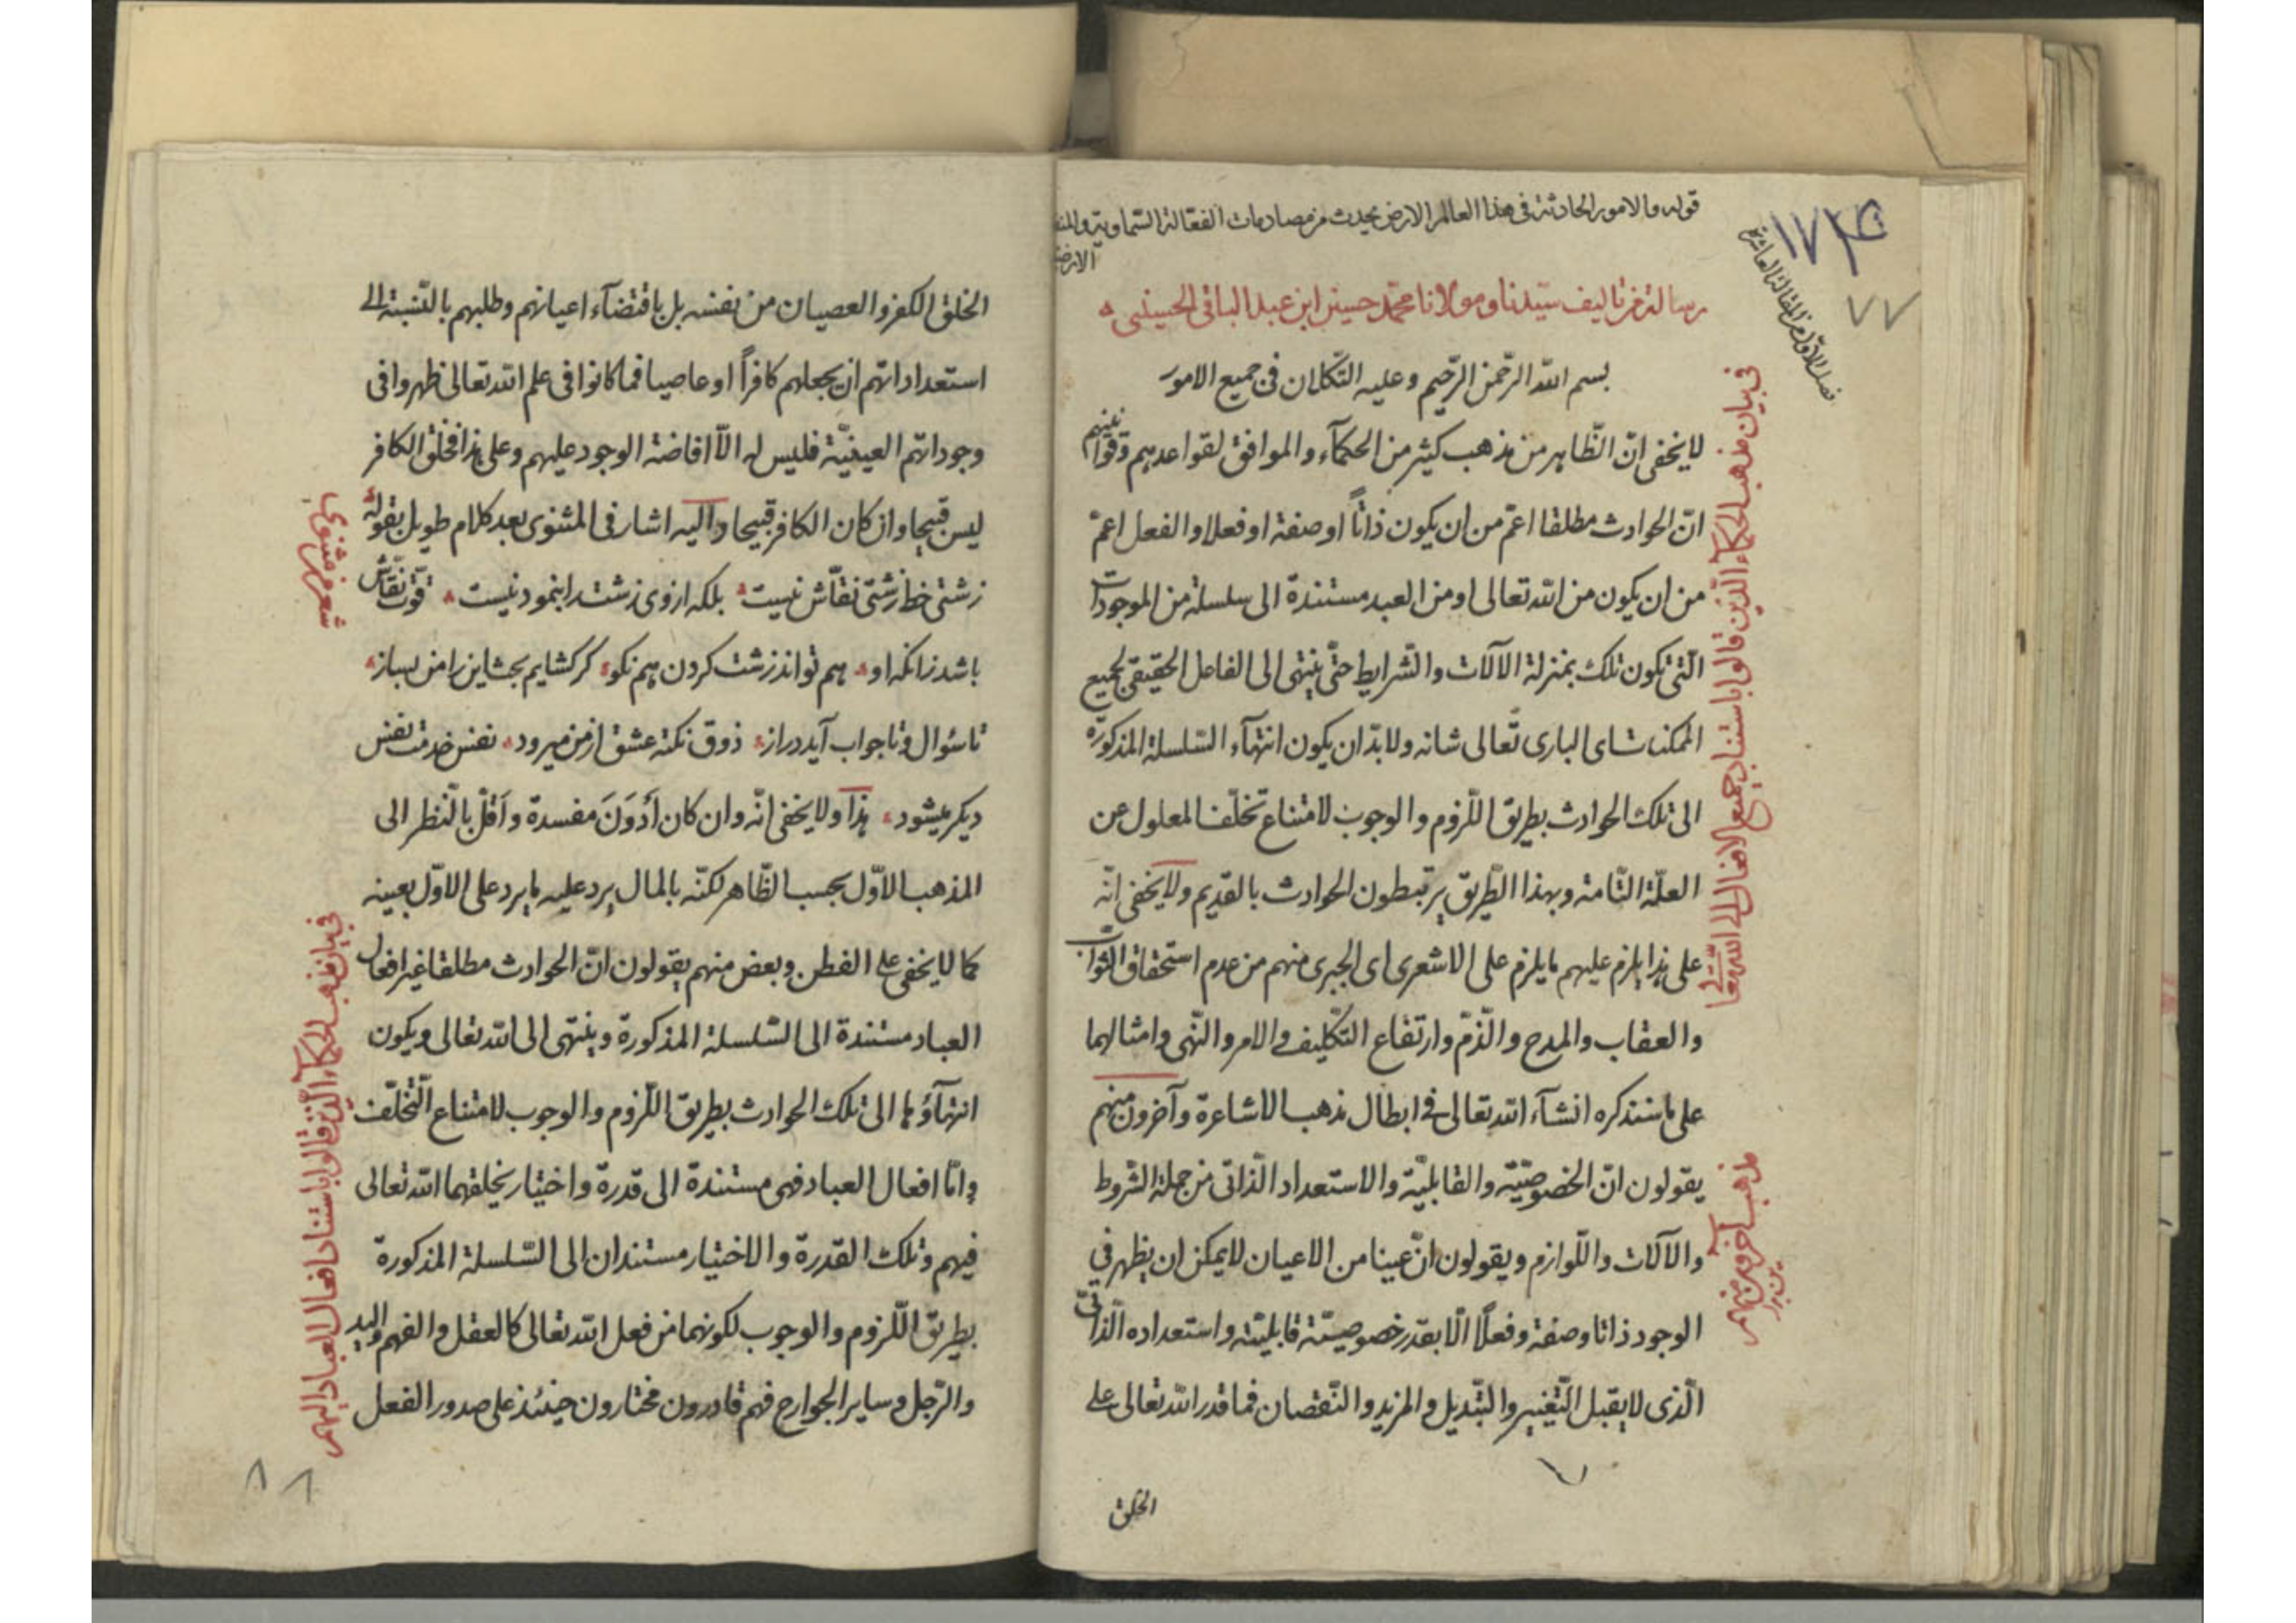 قوله والامور الحادثة فى هذا العالم الارضى يحدث من مصادمات الفعالة السّماوية والمنفعلة
الارضية
١٧٤
٧٧
فصل الاول من المقالة العاشرة
رسالة من تاليف سيّدنا ومولانا محمّد حسين ابن عبد الباقى الحسينى
بسم الله الرّحمن الرّحيم وعليه التّكلان فى جميع الامور
لا يخفى انّ الظّاهر من مذهب كثير من الحكمآء والموافق لقواعدهم وقوانينهم
انّ الحوادث مطلقا اعمّ من ان يكون ذاتاً او صفة او فعلا والفعل اعمّ
من ان يكون من الله تعالى او من العبد مستندة الى سلسلة من الموجودات
الّتى تكون تلك بمنزلة الآلات والشّرايط حتّى ينتهى الى الفاعل الحقيقى لجميع
الممكنات اى البارى تعالى شانه ولا بدّ ان يكون انتهآء السّلسلة المذكورة
الى تلك الحوادث بطريق اللّزوم والوجوب لامتناع تخلّف المعلول عن
العلّة التّامة وبهذا الطّريق يرتبطون الحوادث بالقديم ولا يخفى انّه
على هذا يلزم عليهم ما يلزم على الاشعرى اى الجبرى منهم من عدم استحقاق الثّواب
والعقاب والمدح والذّمّ وارتفاع التّكليف والامر والنّهى وامثالهما
على ما سنذكره انشآء الله تعالى فى ابطال مذهب الاشاعرة وآخرون منهم
يقولون انّ الخصوصيّة والقابليّة والاستعداد الذّاتى من جملة الشّروط
والآلات واللّوازم ويقولون انّ عينا من الاعيان لا يمكن ان يظهر فى
الوجود ذاتا وصفة وفعلًا الّا بقدر خصوصيّة قابليّته واستعداده الذّاتىّ
الّذى لا يقبل التّغيير والتّبديل والمزيد والنّقصان فما قدر الله تعالى على
الخلق
فى بيان مذهب الحكمآء الّذين قالوا باستناد جميع الافعال الى الله تعالى
مذهب آخرين منهم
٧
الخلق الكفر والعصيان من نفسه بل باقتضآء اعيانهم وطلبهم بالنّسبة الى
استعداداتهم ان يجعلهم كافراً او عاصيا فما كانوا فى علم الله تعالى ظهروا فى
وجوداتهم العينيّة فليس له الّا افاضة الوجود عليهم وعلى هذا فخلق الكافر
ليس قبيحا وان كان الكافر قبيحا واليه اشار فى المثنوى بعد كلام طويل بقوله
زشتى خط زشتى نقّاش نيست بلكه ازوى زشت را بنمود نيست قوّت نقّاش
باشد زانكه او هم تواند زشت كردن هم نكو كر كشايم بحث اين را من بساز
تا سؤال و تا جواب آيد دراز ذوق نكته عشق از من ميرود نقش خدمت نقش
ديكر ميشود هذا ولا يخفى انّه وان كان أدوَنَ مفسدة وأقلّ بالنّظر الى
المذهب الاوّل بحسب الظّاهر لكنّه بالمال يرد عليه ما يرد على الاوّل بعينه
كما لا يخفى على الفطن وبعض منهم يقولون انّ الحوادث مطلقا غير افعال
العباد مستندة الى السّلسلة المذكورة وينتهى الى الله تعالى ويكون
انتهآؤها الى تلك الحوادث بطريق اللّزوم والوجوب لامتناع التّخلّف
وامّا افعال العباد فهى مستندة الى قدرة واختيار يخلقهما الله تعالى
فيهم وتلك القدرة والاختيار مستندان الى السّلسلة المذكورة
بطريق اللّزوم والوجوب لكونهما من فعل الله تعالى كالعقل والفهم واليد
والرّجل وساير الجوارح فهم قادرون مختارون حينئذ على صدور الفعل
شعر من مثنوى
فى بيان مذهب الحكمآء الّذين قالوا باستناد افعال العباد اليهم
٨
٨